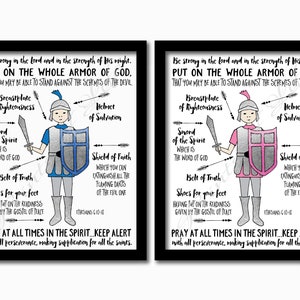 Be strong in the lord and in the strength of His might.
PUT ON THE WHOLE ARMOR OF GOD,
THAT YOU MAY BE ABLE TO STAND AGAINST THE SCHEMES OF THE DEVIL.
Breastplate
of Righteousness
Helmet
of Salvation
Sword
of the Spirit
WHICH IS THE
WORD OF GOD
Shield of Faith
WHICH YOU CAN
EXTINGUISH ALL THE
FLAMING DARTS
OF THE EVIL ONE
Belt of Truth
Shoes for your feet
HAVING PUT ON THE READINESS
GIVEN BY THE GOSPEL OF PEACE
EPHESIANS 6:10-18
PRAY AT ALL TIMES IN THE SPIRIT...KEEP ALERT
with all perseverance, making supplication for all the saints.
Be strong in the lord and in the strength of His might.
PUT ON THE WHOLE ARMOR OF GOD,
THAT YOU MAY BE ABLE TO STAND AGAINST THE SCHEMES OF THE
Breastplate
of Righteousness
Helmet
of Salvation
Sword
of the Spirit
WHICH IS THE
WORD OF GOD
Shield of Faith
WHICH YOU CAN
EXTINGUISH ALL THE
FLAMING DARTS
OF THE EVIL ONE
Belt of Truth
Shoes for your feet
HAVING PUT ON THE READINESS
GIVEN BY THE GOSPEL OF PEACE
EPHESIANS 6:10-18
PRAY AT ALL TIMES IN THE SPIRIT...KEEP ALERT
with all perseverance, making supplication for all the saints.